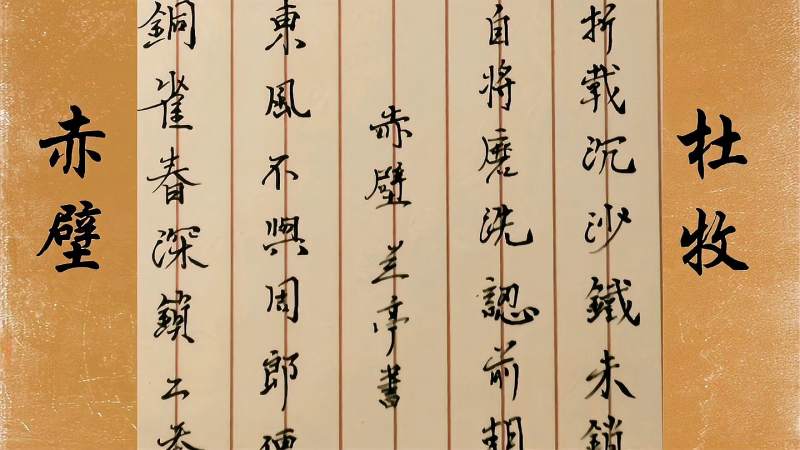 杜牧
折戟沉沙鐵未銷
自將磨洗認前朝
赤壁 兰亭書
東風不與周郎便
銅雀春深鎖二喬
赤壁